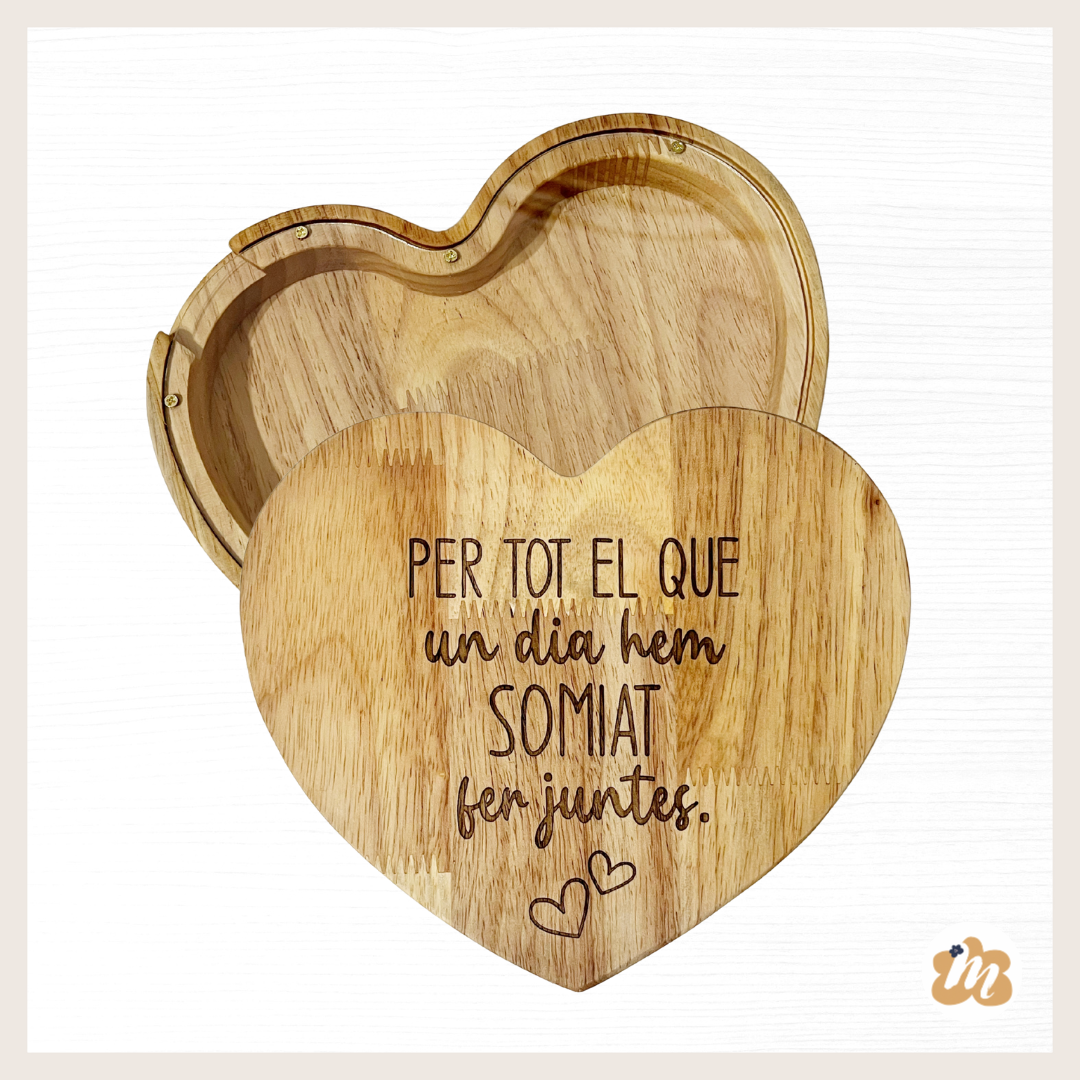 PER TOT EL QUE
un dia hem
SOMIAT
fer juntes.
m